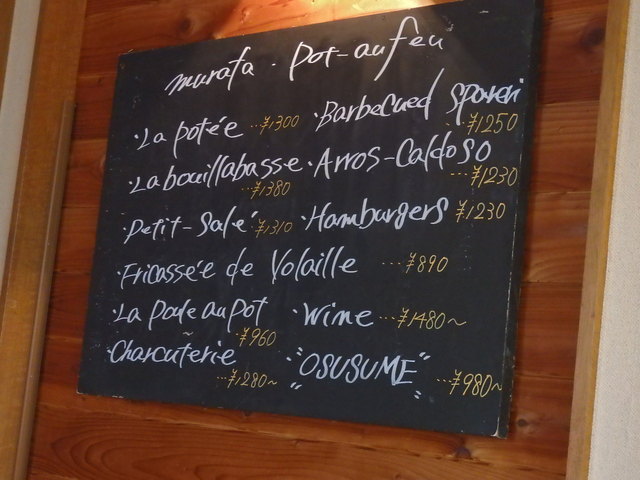 murata · Pot-au feu
· La potée ...¥1300
· Barbecued Spareri
...¥1250
· La bouillabasse
...¥1380
· Arros-Caldoso
...¥1230
· Petit-Salé ...¥1310
· Hamburgers ¥1230
· Fricassée de Volaille ...¥890
· La Poule au Pot
...¥960
· Wine ...¥1480~
· Charcuterie
...¥1280~
· "OSUSUME"
...¥980~